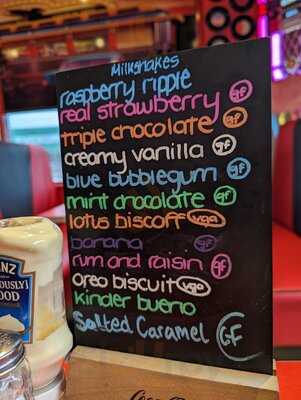 Milkshakes
raspberry ripple
real strawberry GF
triple chocolate GF
creamy vanilla GF
blue bubblegum GF
mint chocolate GF
lotus biscoff VGO
banana GF
rum and raisin GF
oreo biscuit VGO
kinder bueno
Salted Caramel GF